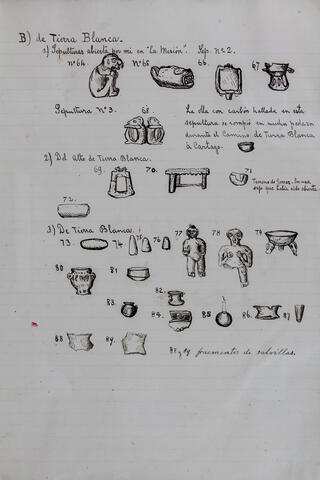 B) de Tierra Blanca.
1) Sepulturas abierta por mi en "La Misión". Sep. nº 2.
nº 64. nº 65 66. 67.
Sepultura Nº 3. 68
La olla con carbón hallada en esta
sepultura se rompió en muchos pedazos
durante el Camino de Tierra Blanca
á Cartago.
2) Del Alto de Tierra Blanca.
69. 70. 71
que había sido abierta.
72.
3) De Tierra Blanca.
73. 74. 75 76 77 78 79
80 81
82.
83. 84. 85 86. 87
88 89.
88 y 89 fragmentos de salvillas.